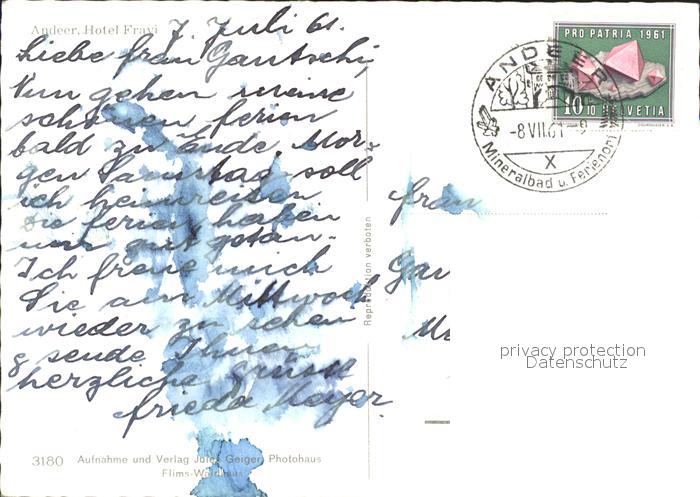 Andeer, Hotel Fravi
7. Juli 61.
Liebe Frau Gautschi,
Nun gehen meine
schönen Ferien
bald zu Ende. Mor-
gen Samstag soll
ich heimreisen
Die Ferien haben
mir gut getan.
Ich freue mich
Sie am Mittwoch
wieder zu sehen
& sende Ihnen
herzliche Grüsse
Frieda Meyer.
3180 Aufnahme und Verlag Jules Geiger, Photohaus
Flims-Waldhaus
Reproduction verboten
PRO PATRIA 1961
10+10 HELVETIA
ANDEER
-8.VII.61
X
Mineralbad u. Ferienort
Frau
Gau
privacy protection
Datenschutz